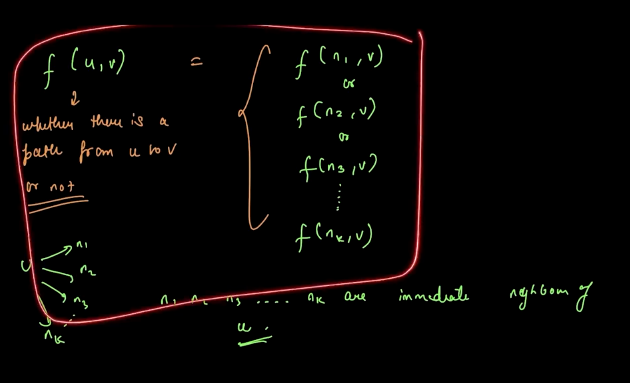 f (u,v) =
f (n1, v)
or
f(n2, v)
or
f(n3, v)
f(nk, v)
whether there is a
path from u to v
or not
u
n1
n2
n3
nk
n1 n2 n3 .... nk are immediate neighbours of
u.